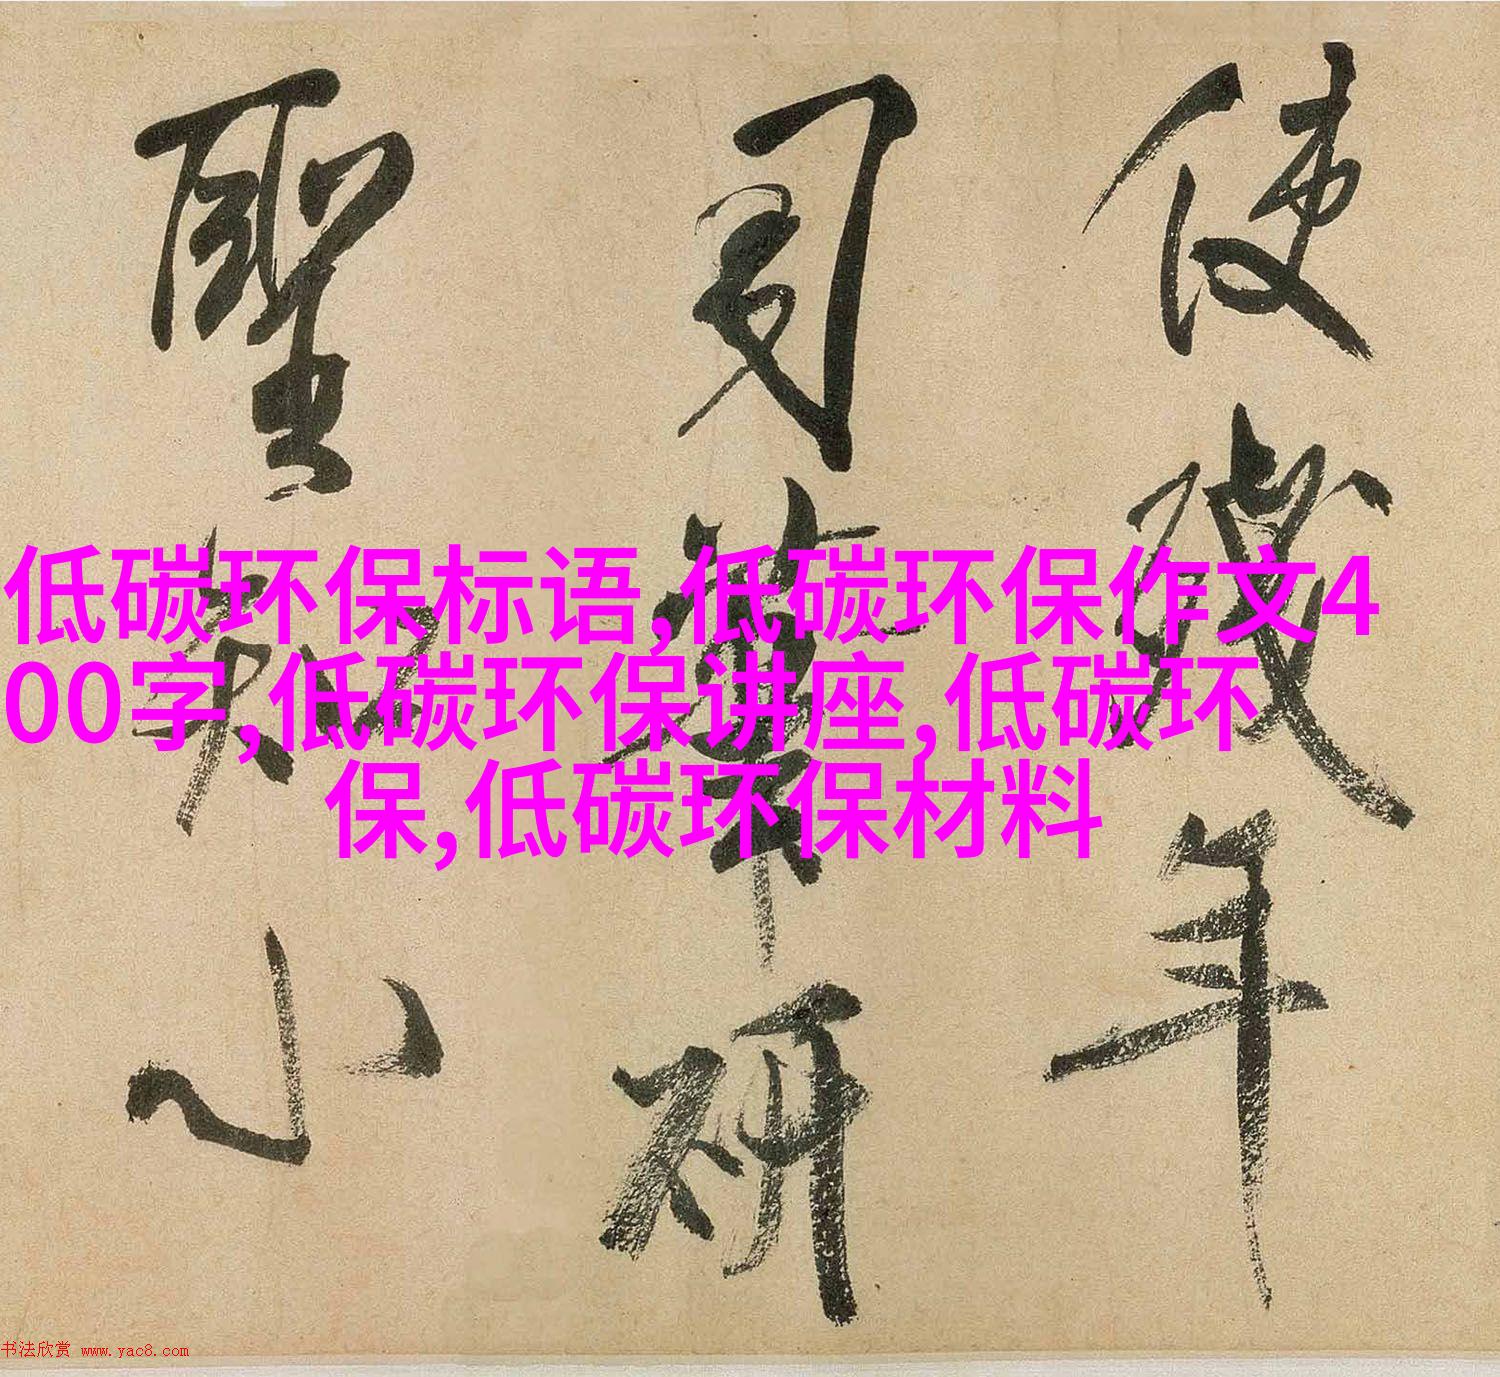 使殘年
司筆研
聖知小
低碳环保标语,低碳环保作文4
00字,低碳环保讲座,低碳环
保,低碳环保材料
书法欣赏 www.yac8.com